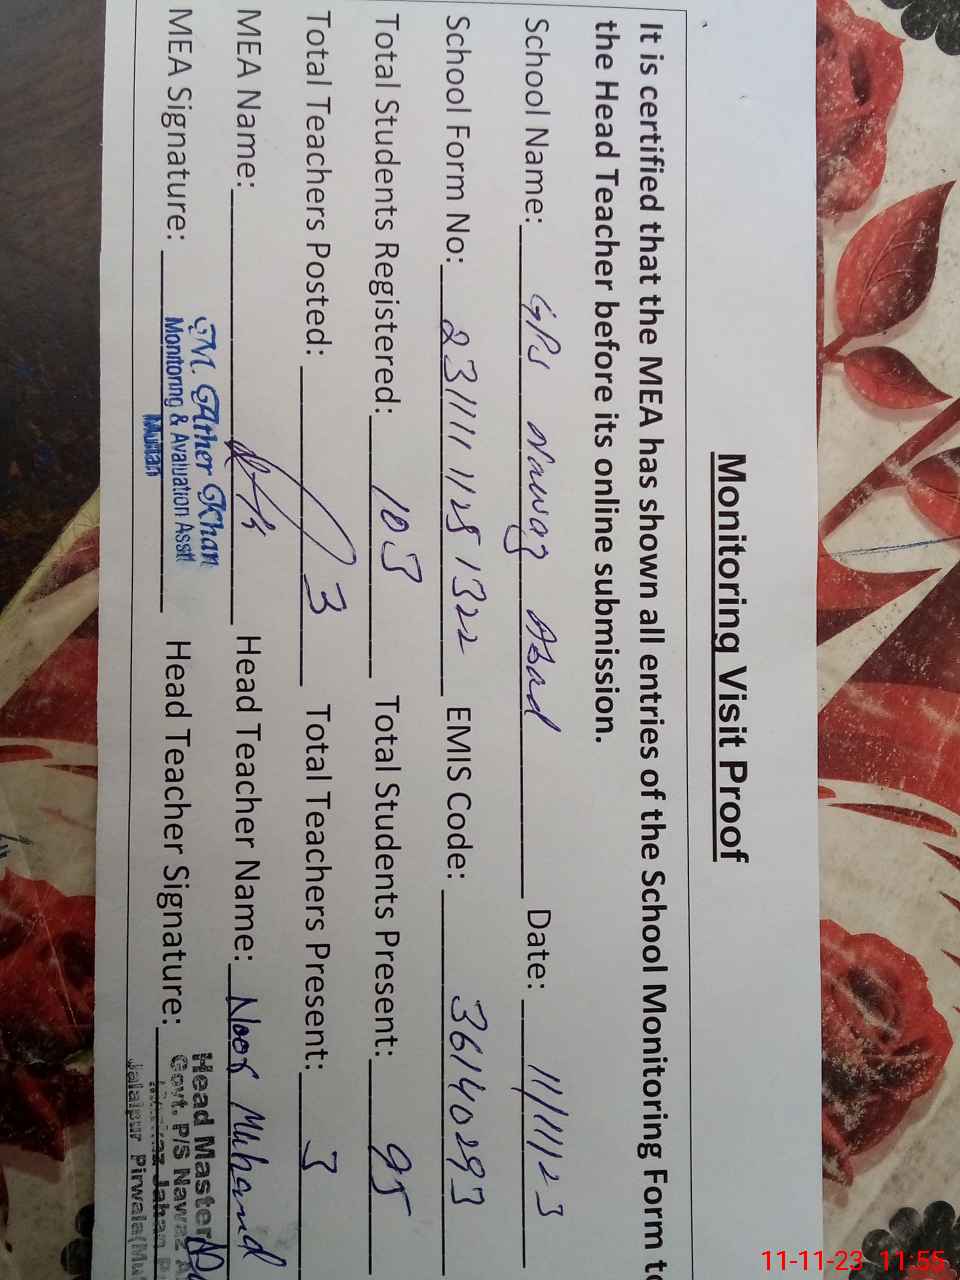 Monitoring Visit Proof
It is certified that the MEA has shown all entries of the School Monitoring Form to
the Head Teacher before its online submission.
School Name: GPS Nawaz Abad Date: 11/11/23
School Form No: EMIS Code: 36140293
Total Students Registered: 103 Total Students Present: 95
Total Teachers Posted: 3 Total Teachers Present: 3
MEA Name: Head Teacher Name: Noor Muhamd
MEA Signature: Head Teacher Signature:
M. Ather Khan
Monitoring & Avaluation Asstt
Multan
Head Master
Govt. P/S Nawaz
Jahan
Jalalpur Pirwala(Mu
11-11-23 11:55